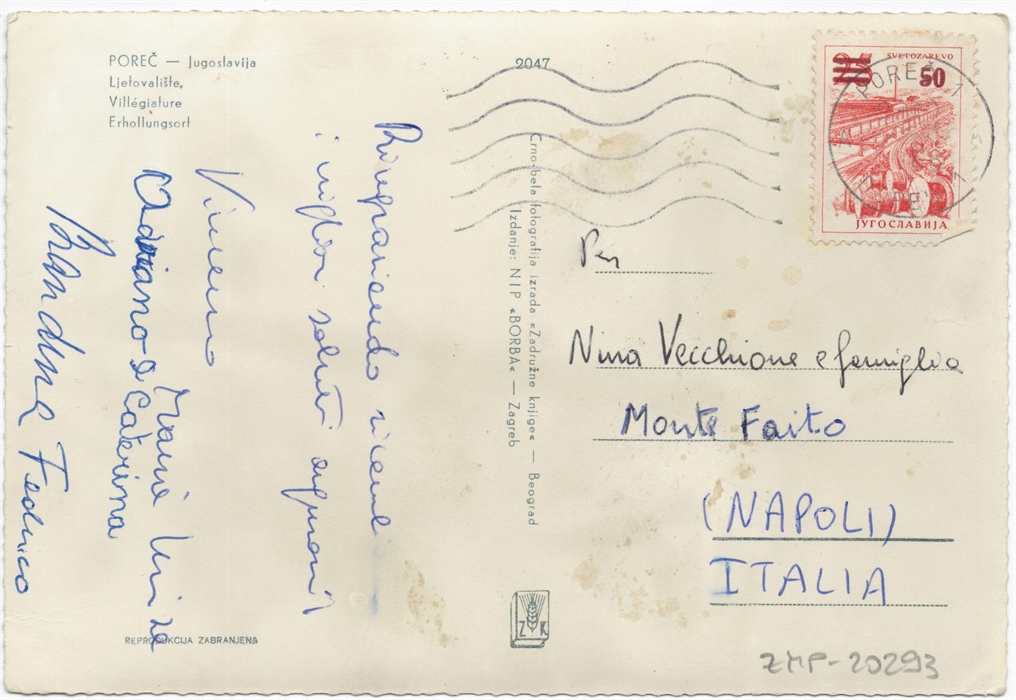 POREČ — Jugoslavija
Ljetovalište,
Villégiature
Erhollungsort
2047
Crno-bela fotografija izrada «Zadružne knjige« — Beograd
Izdanje: NIP «BORBA« — Zagreb
SVETOZAREVO
25 50
POREČ 1
ЈУГОСЛАВИЈА
Ringraziando
i migliori saluti auguroni
Vimera
Maria
Adriano e
Caterina
Federico
Per
Nina Vecchione e famiglia
Monte Faito
(NAPOLI)
ITALIA
Z K
REPRODUKCIJA ZABRANJENA
ZMP-20293